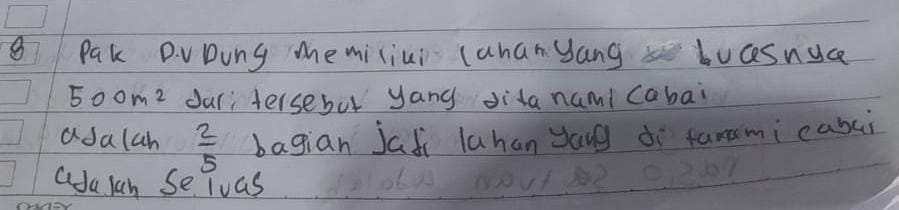 8 Pak D.V Dung memiliui lahan yang luasnya
500m2 dari tersebut yang ditanami cabai
adalah 2/5 bagian jadi lahan yang di tanami cabai
adalah seluas